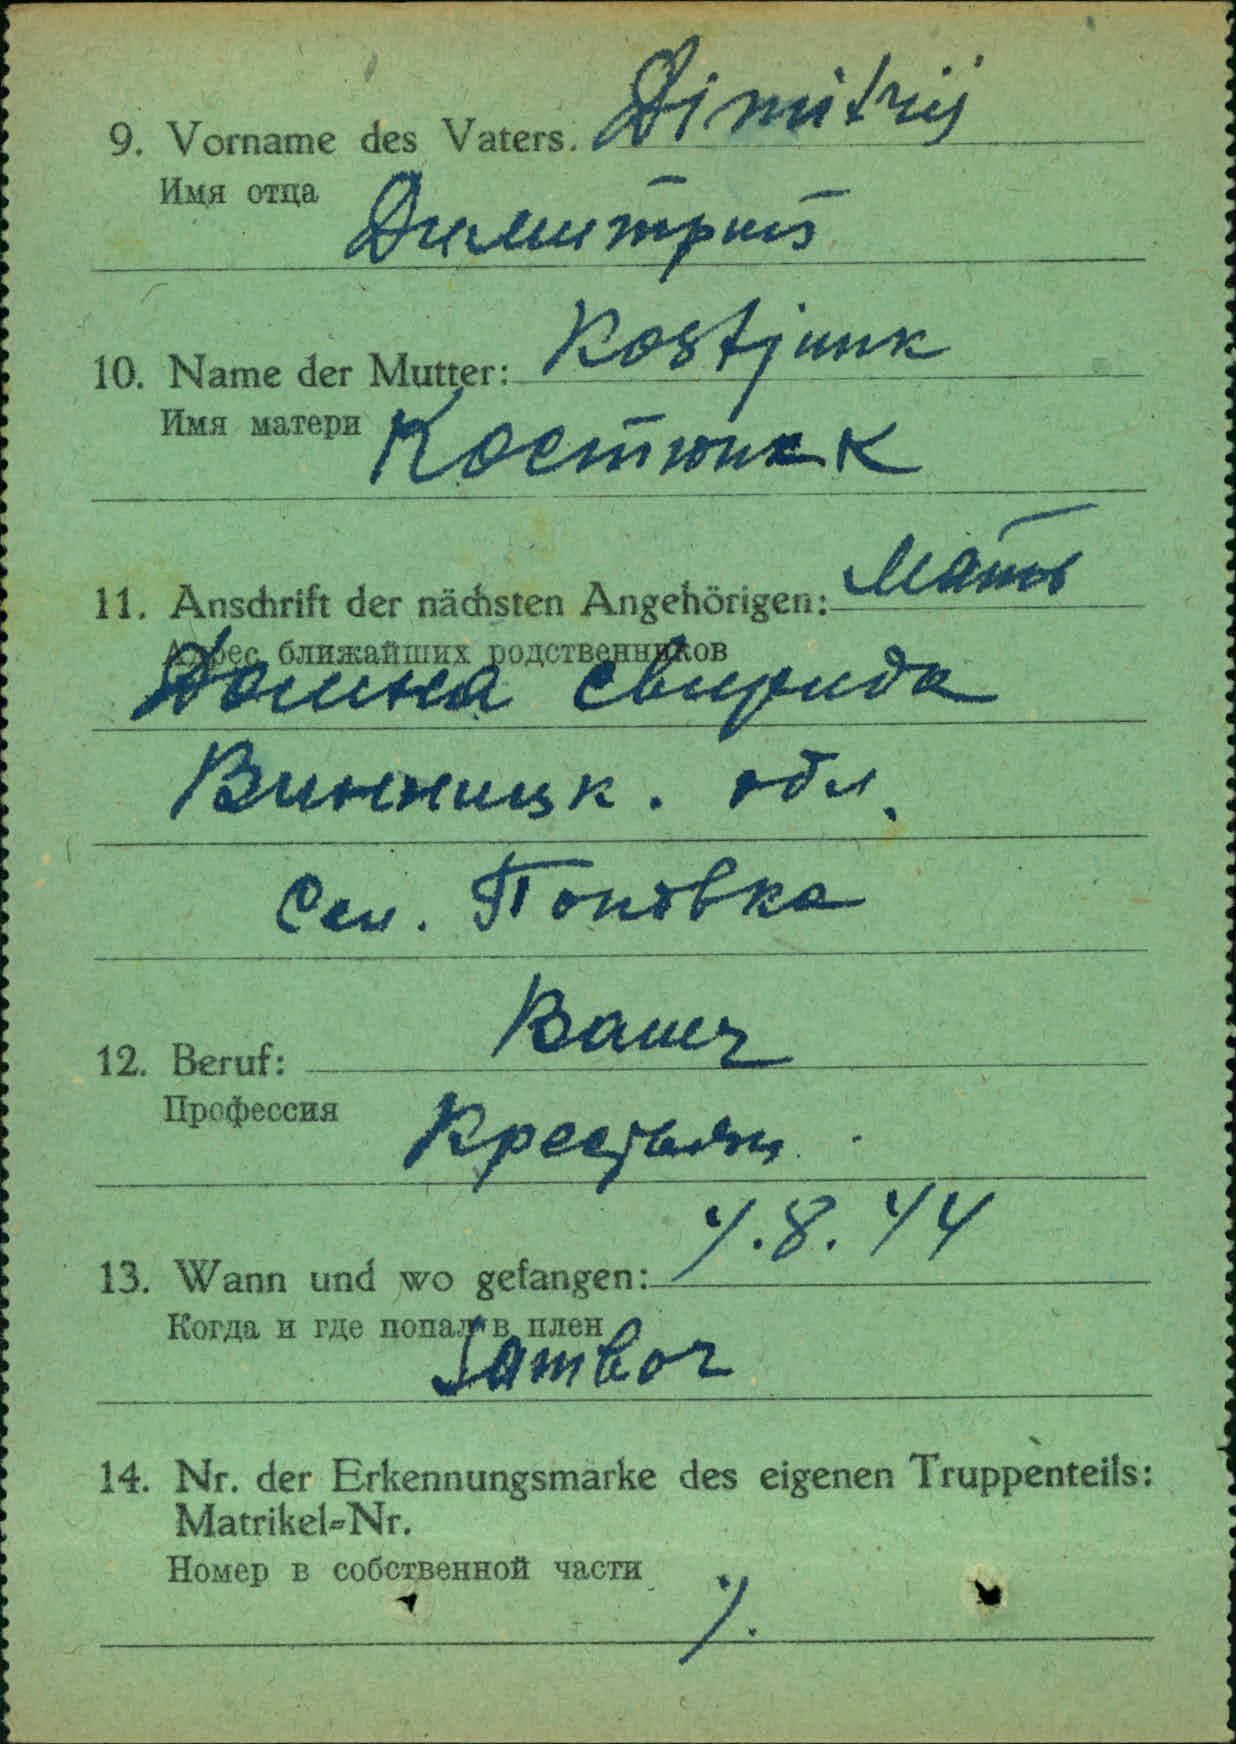 9. Vorname des Vaters. Dimitrij
Имя отца
Димитрий
10. Name der Mutter: Kostjunk
Имя матери Костюнк
11. Anschrift der nächsten Angehörigen: Мать
Адрес ближайших родственников
Свирида
Винницк. обл.
Сел. Поповка
12. Beruf: Bauer
Профессия
Крестьян.
13. Wann und wo gefangen: /.8.44
Когда и где попал в плен
Sambor
14. Nr. der Erkennungsmarke des eigenen Truppenteils:
Matrikel=Nr.
Номер в собственной части
/.